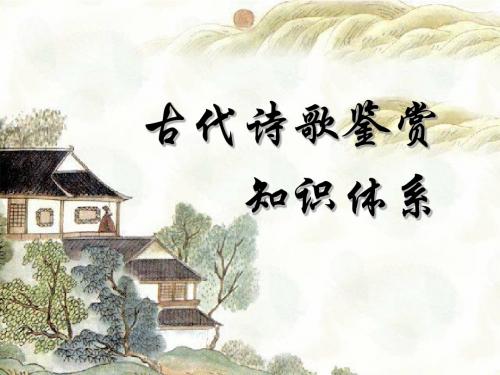 古代诗歌鉴赏
知识体系